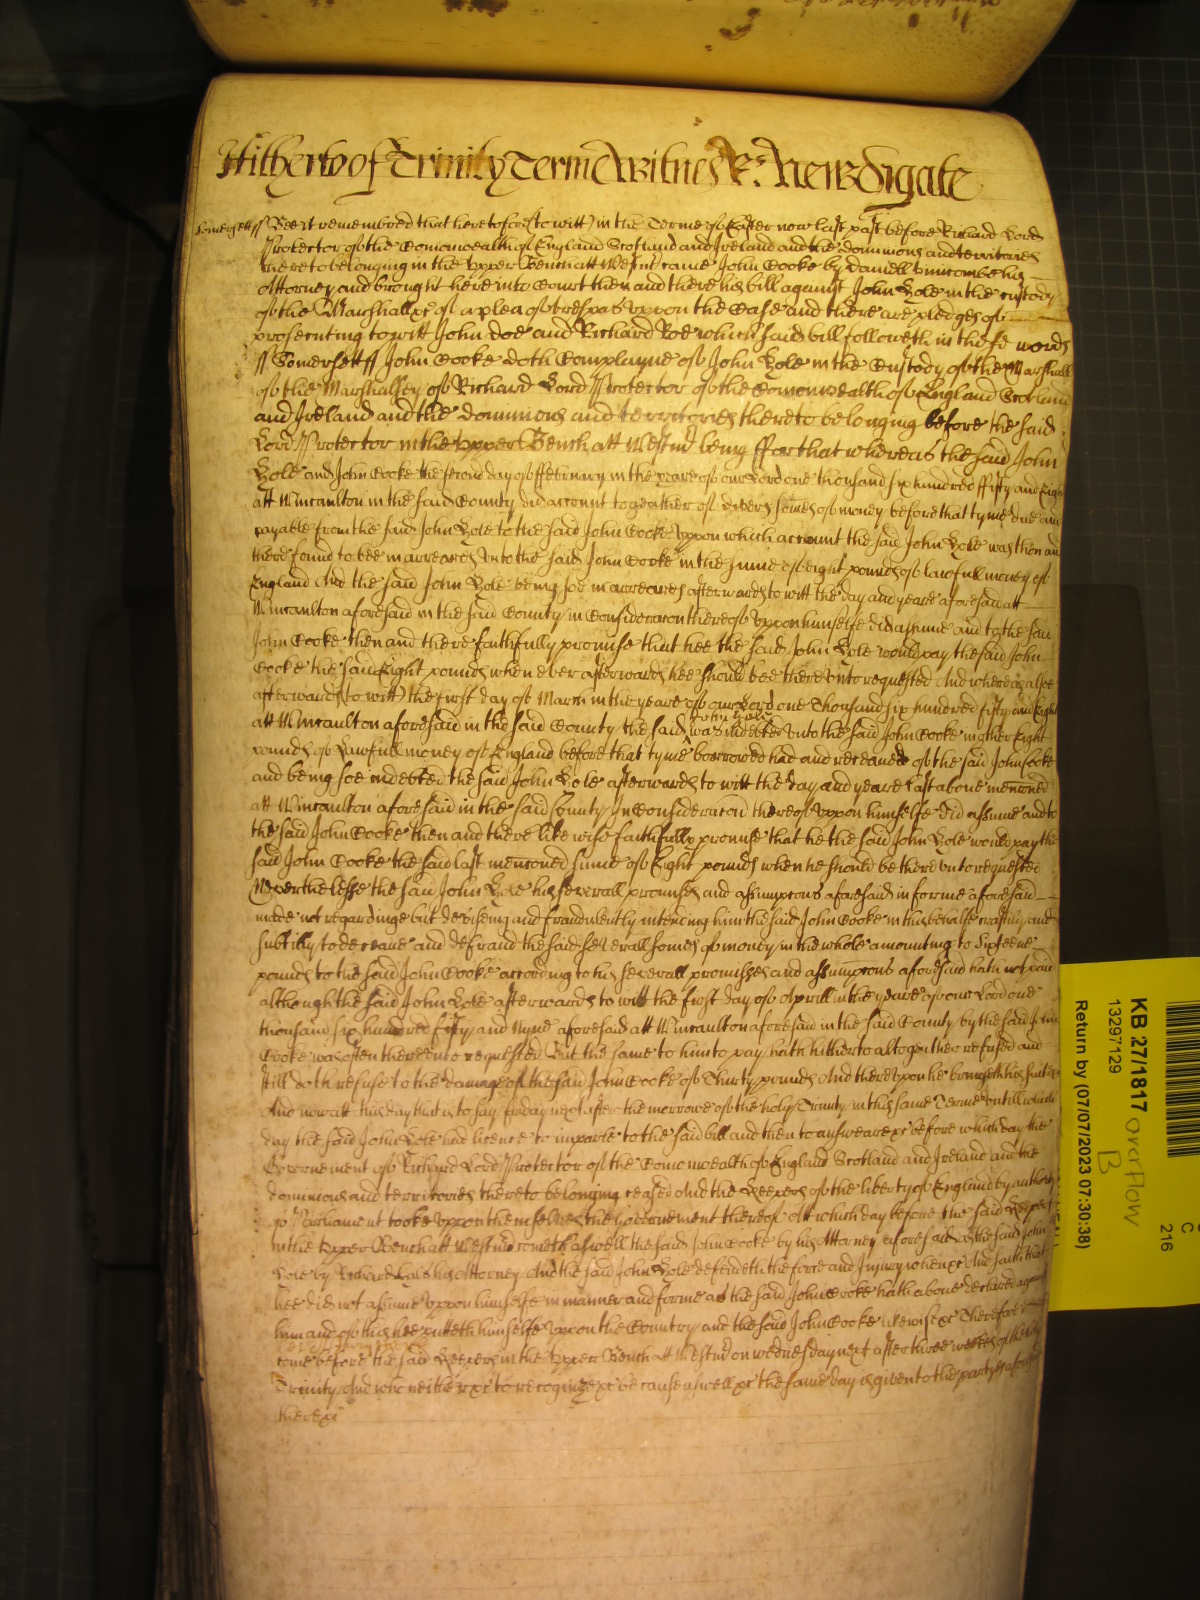 Hitherto of Trinity Terme Witnes &c: Newdigate
Somersett ss Bee it remembred that heretofore (to witt) in the Terme of Easter now last past before Richard Lord
Protector of the Comonwealth of England Scotland and Ireland and the dominions and territories
thereto belonging in the Upper Bench att Westmr came John Cooke by Daniell his
Attorney and brought here into Court then and there his bill against John Hole in the custody
of the Marshall &c of a plea of trespas upon the Case and there are pledges of
prosecuting to witt John Doe and Richard Roe which said bill followeth in these words
ss Somersett ss John Cooke doth Complayne of John Hole in the Custody of the Marshall
of the Marshallsey of Richard Lord Protector of the Comonwealth of England Scotland
and Ireland and the dominions and territories thereto belonging before the said
Lord Protector in the Upper Bench att Westmr being ffor that whereas the said John
Hole and John Cooke the second day of ffebruary in the yeare of our Lord one thousand six hundred ffifty and Eight
att Mincaulton in the said County did account togeather of divers somes of money before that tyme due and
payable from the said John Hole to the said John Cooke uppon which account the said John Hole was then and
there found to bee in arreares unto the said John Cooke in the summe of eight pounds of lawfull money of
England And the said John Hole being soe in arreares afterwards to witt the day and yeare aforesaid att
Mincaulton aforesaid in the said County in Consideracon thereof uppon himselfe did assume and to the said
John Cooke then and there faithfully promise that hee the said John Hole would pay the said John
Cooke the said Eight pounds when ever afterwards hee should bee thereunto requested And whereas alsoe
afterwards (to witt) the first day of March in the yeare of our Lord one Thousand six hundred fifty and Eight
att Mincaulton aforesaid in the said County the said John Hole was indebted unto the said John Cooke in other Eight
pounds of Lawfull money of England before that tyme borrowed had and receaved of the said John Cooke
and being soe indebted the said John Hole afterwards to witt the day and yeare last above mencioned
att Mincaulton aforesaid in the said County In Consideracon thereof uppon himselfe did assume and to
the said John Cooke then and there likewise faithfully promise that he the said John Hole would pay the
said John Cooke the said last mencioned summe of Eight pounds when he should be thereunto requested
Neverthelesse the said John Hole his severall promises and assumptions aforesaid in forme aforesaid
made not regardinge but deviseing and fraudulently intending him the said John Cooke in this behalfe craftily and
subtilly to deceave and defraud the said severall somes of money in the whole amounting to Sixteene
pounds to the said John Cooke according to his severall promisses and assumptions aforesaid hath not paid
although the said John Hole afterwards to witt the first day of Aprill in the yeare of our Lord one
thousand six hundred fifty and Nyne aforesaid att Mincaulton aforesaid in the said County by the said John
Cooke was often thereunto requested But the same to him to pay hath hitherto altogeather refused and
still doth refuse to the damage of the said John Cooke of Thirty pounds And thereupon he bringeth his suite &c
And now att this day that is to say friday next after the morrowe of the holy Trinity in this same Terme untill which
day the said John Hole had licence to imparle to the said bill and then to answeare &c before which day the
Governement of Richard Lord Protector of the Comonwealth of England Scotland and Ireland and the
dominions and territories thereto belonging ceased And the Keepers of the liberty of England by authority
of Parliament tooke uppon themselves the governement thereof Att which day before the said Keepers
in the Upper Bench att Westmr cometh aswell the said John Cooke by his Attorney aforesaid as the said John
Hole by Richard his Attorney And the said John Hole defendeth the force and Injury when &c And saith that
hee did not assume uppon himselfe in manner and forme as the said John Cooke hath above declared against
him and of this hee putteth himselfe upon the Country and the said John Cooke likewise &c Therefore
come before the said Keepers in the Upper Bench att Westmr on wednesday next after three weekes of the holy
Trinity And who neither &c to recognize &c because aswell &c the same day is given to the partyes aforesaid
there &c
KB 27/1817 overflow
B
13297129
Return by (07/07/2023 07:30:38)
C
216